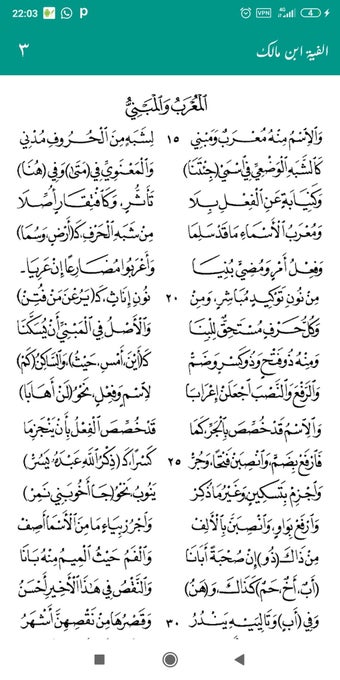 22:03 P VPN 4G 4
الفية ابن مالك ٣
المُعْرَبُ وَالْمَبْنِيُّ
وَالِاسْمُ مِنْهُ مُعْرَبٌ وَمَبْنِي ١٥ لِشَبَهٍ مِنَ الْحُرُوفِ مُدْنِي
كَالشَّبَهِ الْوَضْعِيِّ فِي اسْمَيْ (جِئْتَنَا) وَالْمَعْنَوِيِّ فِي (مَتَى) وَفِي (هُنَا)
وَكَنِيَابَةٍ عَنِ الْفِعْلِ بِلَا تَأَثُّرٍ، وَكَافْتِقَارٍ أُصِّلَا
وَمُعْرَبُ الْأَسْمَاءِ مَا قَدْ سَلِمَا مِنْ شَبَهِ الْحَرْفِ كَـ(أَرْضٍ، وَسُمَا)
وَفِعْلُ أَمْرٍ وَمُضِيٍّ بُنِيَا وَأَعْرَبُوا مُضَارِعًا إِنْ عَرِيَا-
مِنْ نُونِ تَوْكِيدٍ مُبَاشِرٍ، وَمِنْ ٢٠ نُونِ إِنَاثٍ، كَـ(يَرُعْنَ مَنْ فُتِنْ)
وَكُلُّ حَرْفٍ مُسْتَحِقٌّ لِلْبِنَا وَالْأَصْلُ فِي الْمَبْنِيِّ أَنْ يُسَكَّنَا
وَمِنْهُ ذُو فَتْحٍ وَذُو كَسْرٍ وَضَمّ كَـ(أَيْنَ، أَمْسِ، حَيْثُ)، وَالسَّاكِنُ (كَمْ)
وَالرَّفْعَ وَالنَّصْبَ اجْعَلَنْ إِعْرَابَا لِاسْمٍ وَفِعْلٍ، نَحْوُ (لَنْ أَهَابَا)
وَالِاسْمُ قَدْ خُصِّصَ بِالْجَرِّ كَمَا قَدْ خُصِّصَ الْفِعْلُ بِأَنْ يَنْجَزِمَا
فَارْفَعْ بِضَمٍّ، وَانْصِبَنْ فَتْحًا، وَجُرّ ٢٥ كَسْرًا، كَـ(ذِكْرُ اللهِ عَبْدَهُ يَسُرّ)
وَاجْزِمْ بِتَسْكِينٍ، وَغَيْرُ مَا ذُكِرْ يَنُوبُ، نَحْوُ (جَا أَخُو بَنِي نَمِرْ)
وَارْفَعْ بِوَاوٍ، وَانْصِبَنَّ بِالْأَلِفْ وَاجْرُرْ بِيَاءٍ مَا مِنَ الْأَسْمَا أَصِفْ
مِنْ ذَاكَ (ذُو) إِنْ صُحْبَةً أَبَانَا وَالْفَمُ حَيْثُ الْمِيمُ مِنْهُ بَانَا
(أَبٌ، أَخٌ، حَمٌ) كَذَاكَ، وَ(هَنُ) وَالنَّقْصُ فِي هَذَا الْأَخِيرِ أَحْسَنُ
وَفِي (أَبٍ) وَتَالِيَيْهِ يَنْدُرُ ٣٠ وَقَصْرُهَا مِنْ نَقْصِهِنَّ أَشْهَرُ